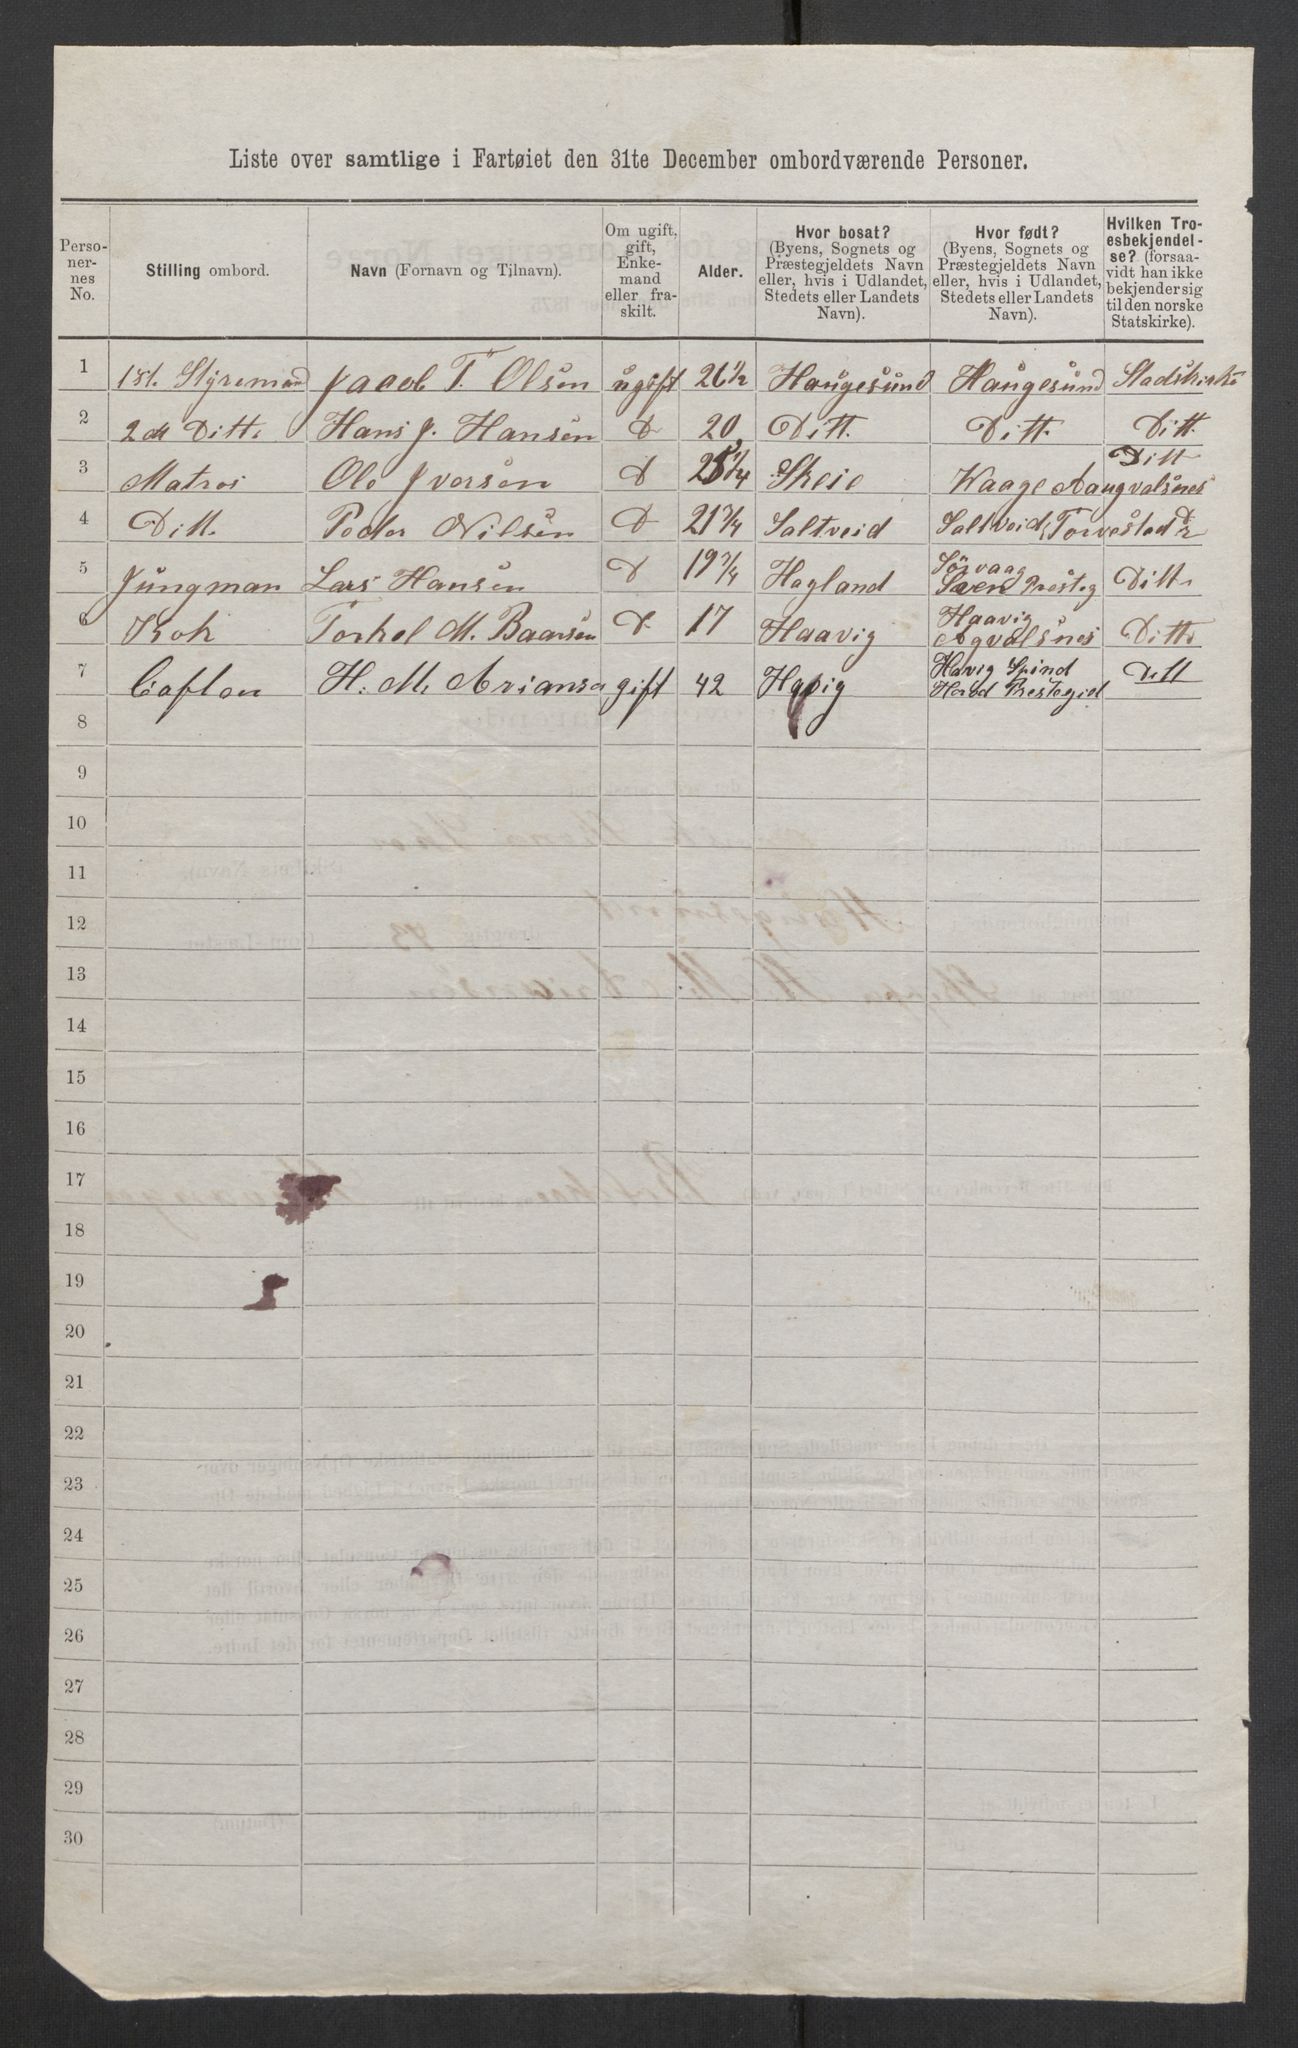 Liste over samtlige i Fartøiet den 31te December ombordværende Personer.
Perso-
ner-
nes
No.
Stilling ombord.
Navn (Fornavn og Tilnavn).
Om ugift,
gift,
Enke-
mand
eller fra-
skilt.
Alder.
Hvor bosat?
(Byens, Sognets og
Præstegjeldets Navn
eller, hvis i Udlandet,
Stedets eller Landets
Navn).
Hvor født?
(Byens, Sognets og
Præstegjeldets Navn
eller, hvis i Udlandet,
Stedets eller Landets
Navn).
Hvilken Tro-
esbekjendel-
se? (forsaa-
vidt han ikke
bekjender sig
til den norske
Statskirke).
1 1st. Styremand Jacob T. Olsen ugift 26 1/2 Haugesund Haugesund Stadskirke
2 2d Ditto Hans J. Hansen D 20 Ditt. Ditt. Ditt.
3 Matros Ole Iversen D 25 1/4 Skeie Waage Aaugvalsnes Ditt
4 Ditt. Peder Nilsen D 21 3/4 Saltveid Saltveid Torvestad D
5 Jungman Lars Hansen D 19 3/4 Hagland Sörvaag
Sveen Presteg Ditt.
6 Kok Torkel M. Baarsen D 17 Haavig Haavig
Agvalsnes Ditto
7 Capten H. M. Ariansen gift 42 Havig Havig Spind
Herad Prestegid Ditt
8
9
10
11
12
13
14
15
16
17
18
19
20
21
22
23
24
25
26
27
28
29
30